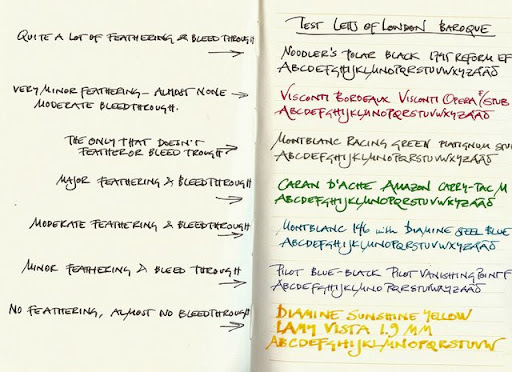 QUITE A LOT OF FEATHERING & BLEEDTHROUGH
VERY MINOR FEATHERING – ALMOST NONE
MODERATE BLEEDTHROUGH.
THE ONLY THAT DOESN'T
FEATHER OR BLEED TROUGH?
MAJOR FEATHERING & BLEEDTHROUGH
MODERATE FEATHERING & BLEEDTHROUGH
MINOR FEATHERING & BLEED THROUGH
NO FEATHERING, ALMOST NO BLEEDTHROUGH
TEST LETTS OF LONDON BAROQUE
NOODLER'S POLAR BLACK 1745 REFORM EF
ABCDEFGHIJKLMNOPQRSTUVWXYZÅÄÖ
VISCONTI BORDEAUX VISCONTI OPERA F/STUB
ABCDEFGHIJKLMNOPQRSTUVWXYZÅÄÖ
MONTBLANC RACING GREEN PLATIGNUM STU
ABCDEFGHIJKLMNOPQRSTUVWXYZÅÄÖ
CARAN D'ACHE AMAZON CARRY-TAC M
ABCDEFGHIJKLMNOPQRSTUVWXYZÅÄÖ
MONTBLANC 146 with DIAMINE STEEL BLUE
ABCDEFGHIJKLMNOPQRSTUVWXYZÅÄÖ
PILOT BLUE-BLACK PILOT VANISHING POINT F
ABCDEFGHIJKLMNOPQRSTUVWXYZÅÄÖ
DIAMINE SUNSHINE YELLOW
LAMY VISTA 1.9 MM
ABCDEFGHIJKLMNOPQRSTUVW